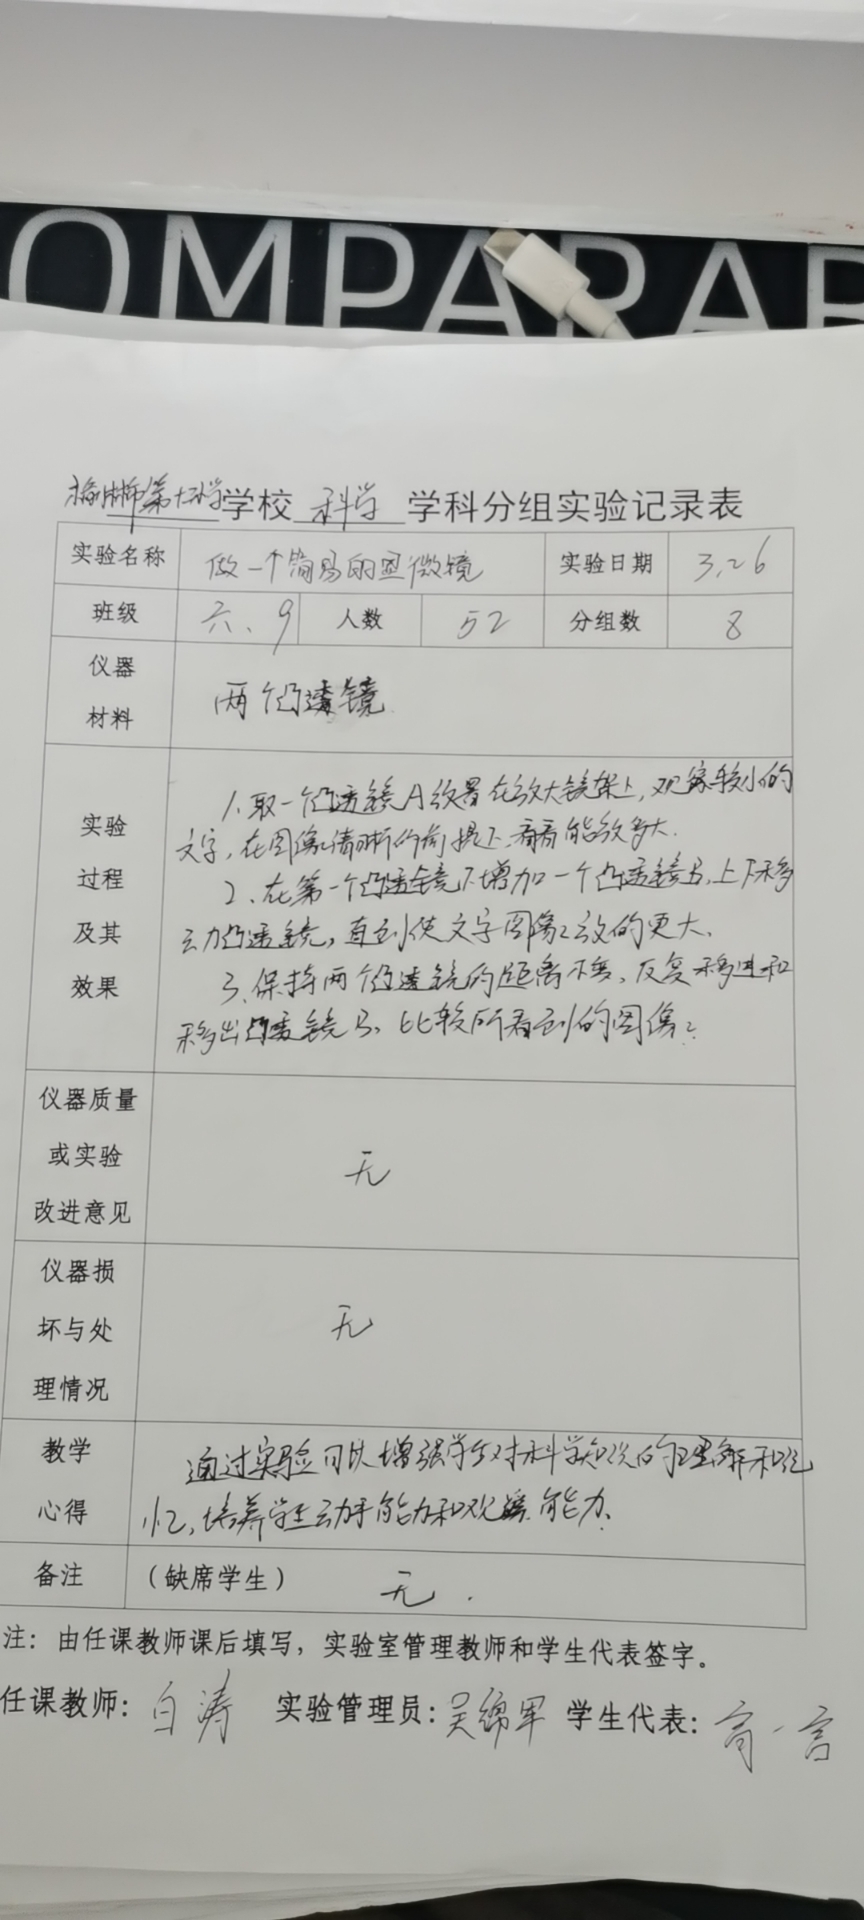 OMPARAB
榆林市第十小学学校 科学 学科分组实验记录表
实验名称 做一个简易的显微镜 实验日期 3.26
班级 六、9 人数 52 分组数 8
仪器材料 两个凸透镜
实验过程及其效果
1、取一个凸透镜A放置在放大镜架上,观察较小的
文字,在图像清晰的前提下,看看能放多大.
2、在第一个凸透镜下增加一个凸透镜B,上下移
动凸透镜,直到使文字图像放的更大.
3、保持两个凸透镜的距离不变,反复移进和
移出凸透镜B,比较所看到的图像.
仪器质量或实验改进意见 无
仪器损坏与处理情况 无
教学心得 通过实验可以增强学生对科学知识的理解和记
忆,培养学生动手能力和观察能力.
备注 (缺席学生) 无.
注:由任课教师课后填写,实验室管理教师和学生代表签字。
任课教师:白涛 实验管理员:吴绵军 学生代表: